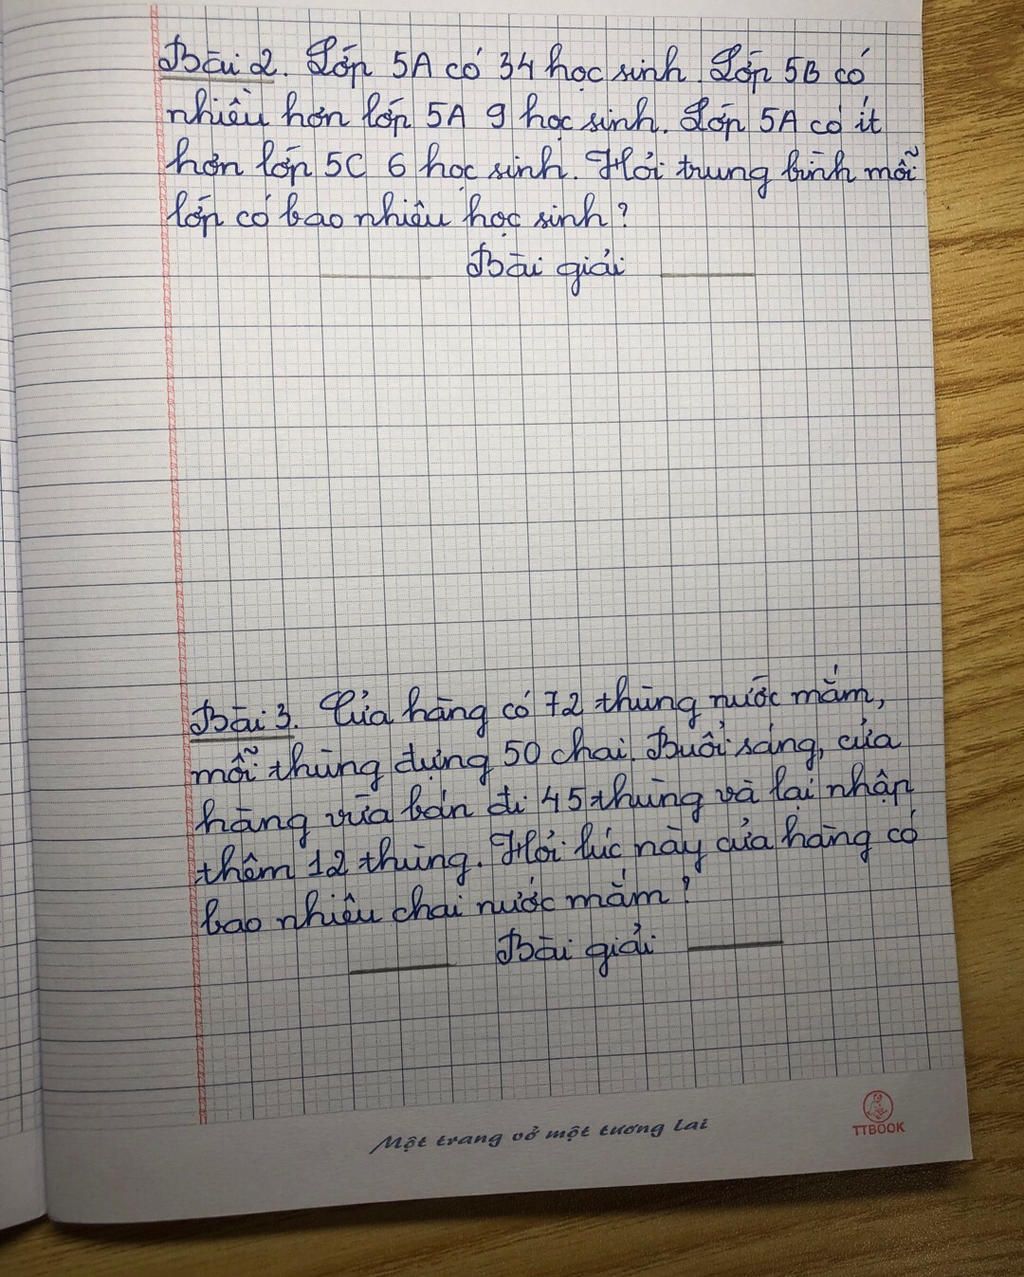 Bài 2. Lớp 5A có 34 học sinh. Lớp 5B có
nhiều hơn lớp 5A 9 học sinh. Lớp 5A có ít
hơn lớp 5C 6 học sinh. Hỏi trung bình mỗi
lớp có bao nhiêu học sinh?
Bài giải
Bài 3. Cửa hàng có 72 thùng nước mắm,
mỗi thùng đựng 50 chai. Buổi sáng, cửa
hàng vừa bán đi 45 thùng và lại nhập
thêm 12 thùng. Hỏi lúc này cửa hàng có
bao nhiêu chai nước mắm?
Bài giải
Một trang vở một tương lai
TTBOOK